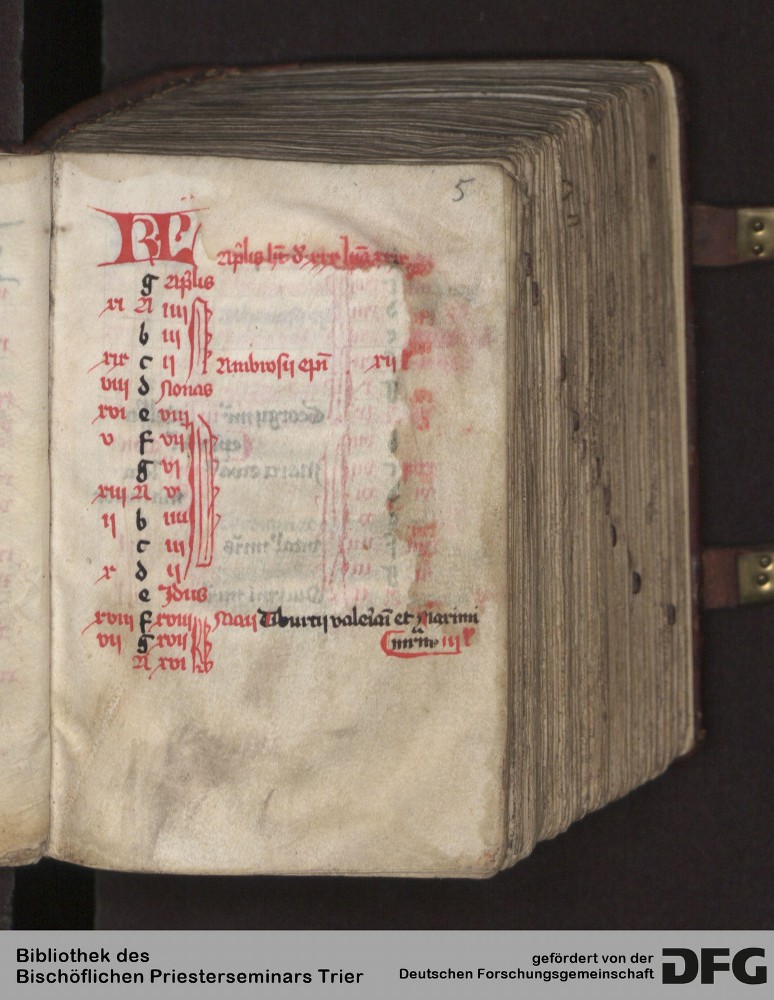 5
KL Aprilis ht d xxx luna xxix
g Aprilis
xi A iiii
b iii
xix c ii Ambrosii epi xii
viii d Nonas
xvi e viii
v f vii
g vi
xiii A v
ii b iiii
c iii
x d ii
e Idus
xviii f xviii Maii Tiburtii valeriani et Maximi
vii g xvii mrm iii l
A xvi
Bibliothek des
Bischöflichen Priesterseminars Trier
gefördert von der
Deutschen Forschungsgemeinschaft DFG